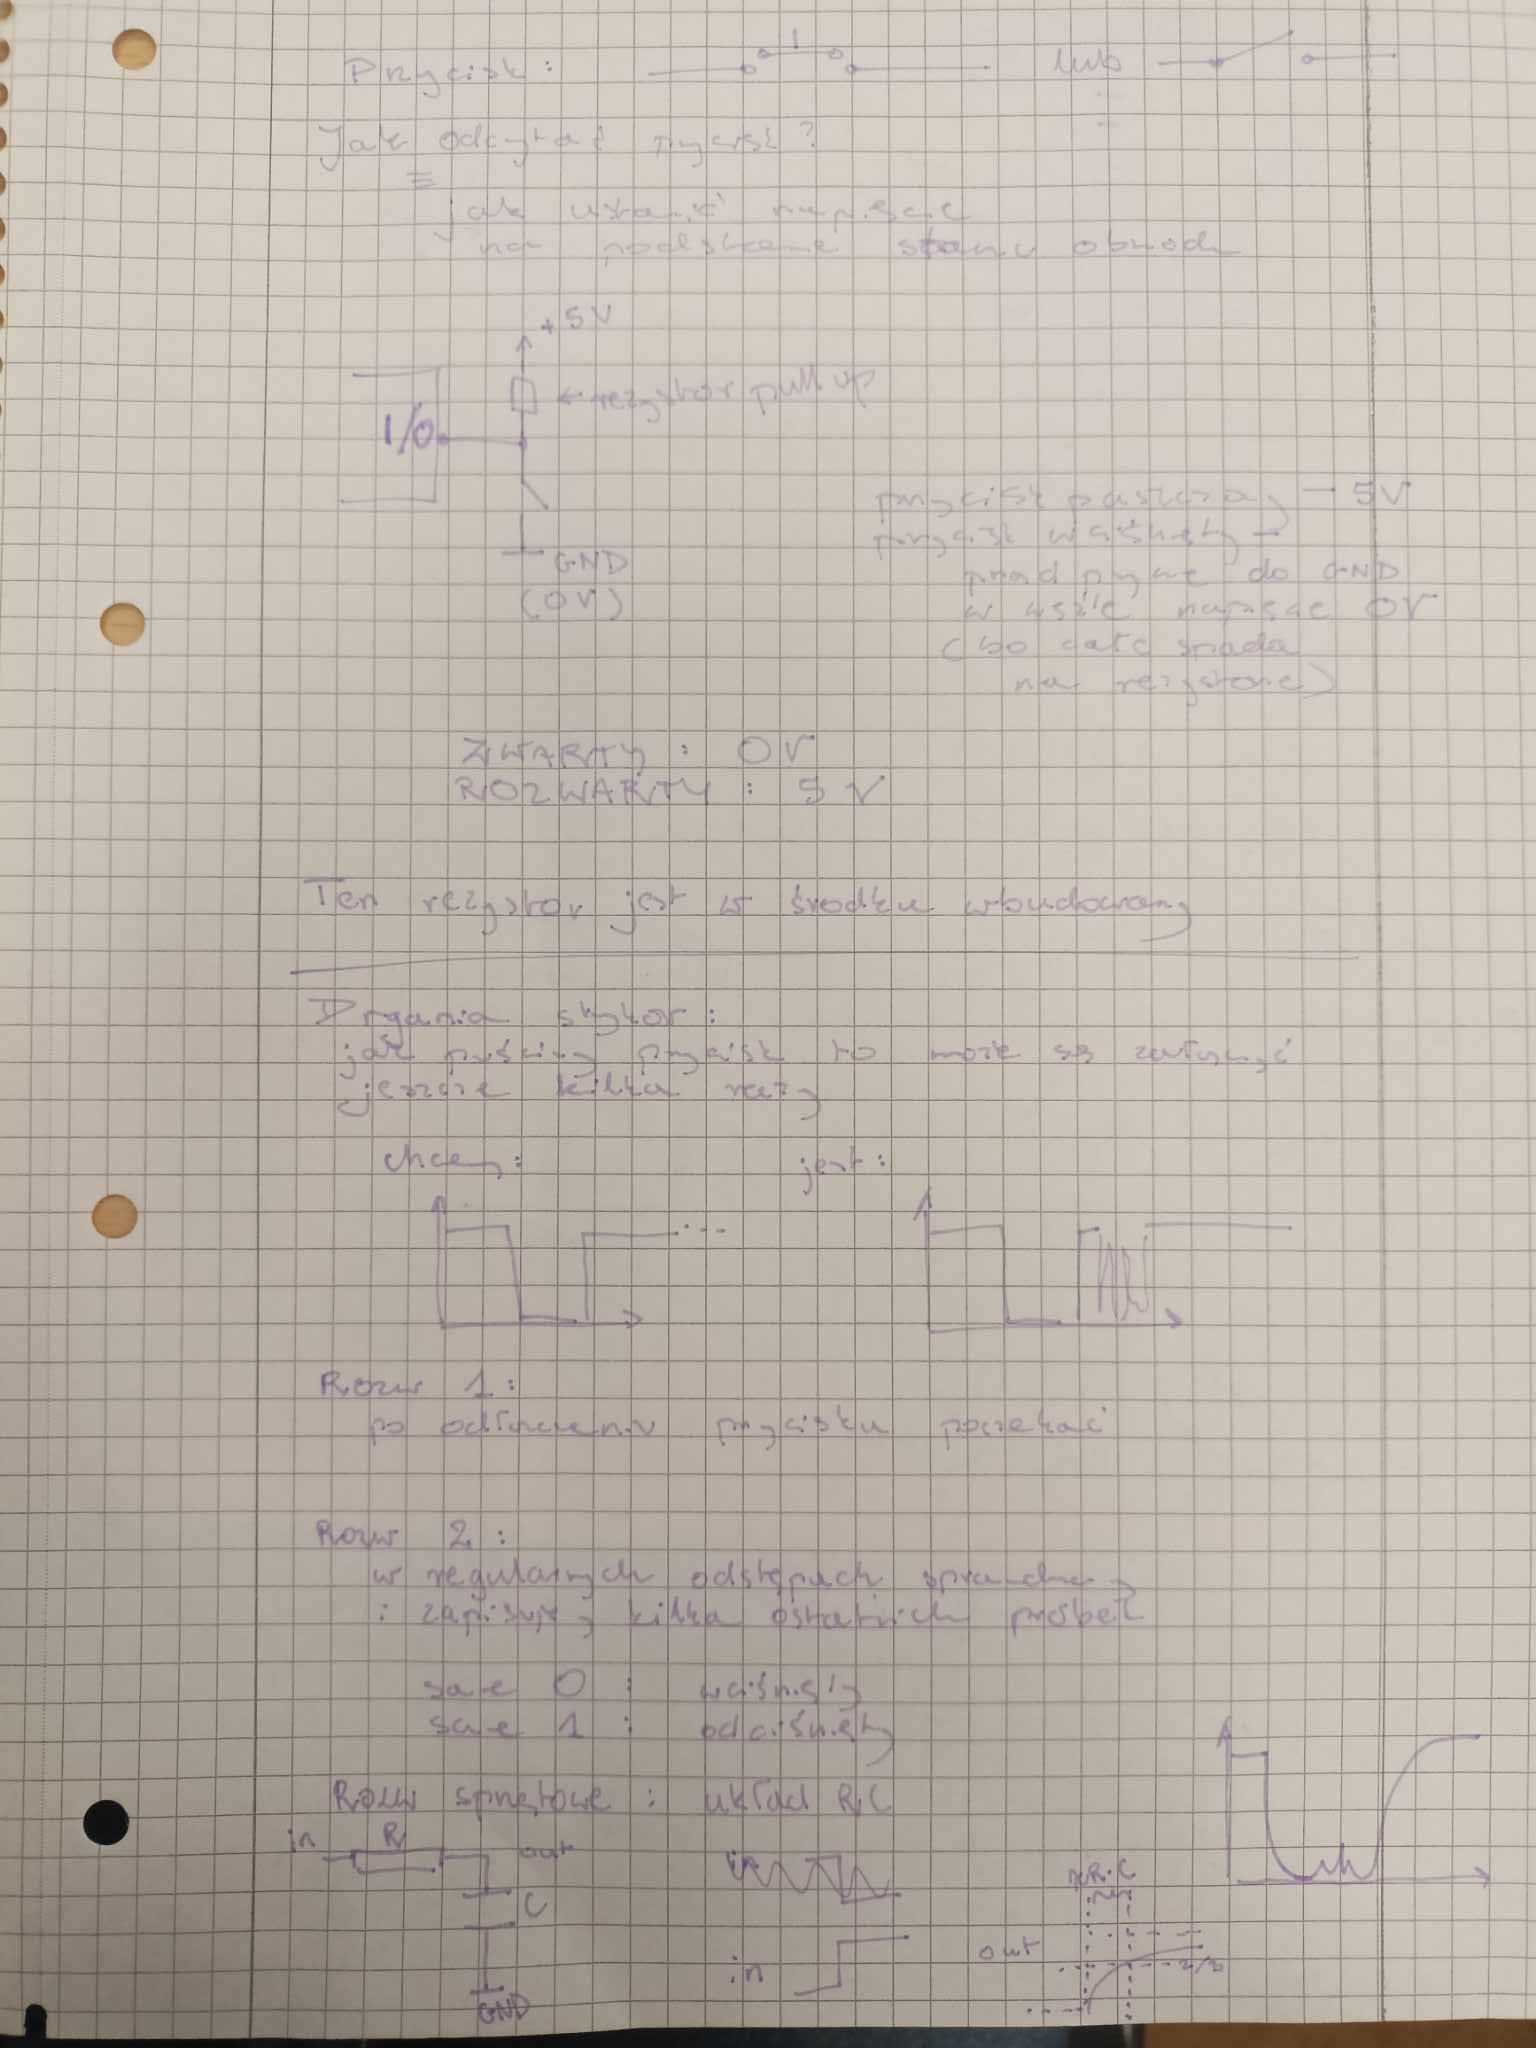 Przycisk: lub
Jak odczytać przycisk?
≡
jak ustawić napięcie
na podstawie stanu obwodu
+5V
← rezystor pull up
I/O
GND
(0V)
przycisk puszczony → 5V
przycisk wciśnięty →
prąd płynie do GND
w węźle napięcie 0V
(bo całe spada
na rezystorze)
ZWARTY: 0V
ROZWARTY: 5V
Ten rezystor jest w środku wbudowany
Drgania styków:
jak puścimy przycisk to może się załączyć
jeszcze kilka razy
chcemy: jest:
Rozw 1:
po odłączeniu przycisku poczekać
Rozw 2:
w regularnych odstępach sprawdzamy
i zapisujemy kilka ostatnich próbek
same 0: wciśnięty
same 1: odciśnięty
Rozw sprzętowe: układ RC
in R out
C
GND
in
R·C
in out 2/3